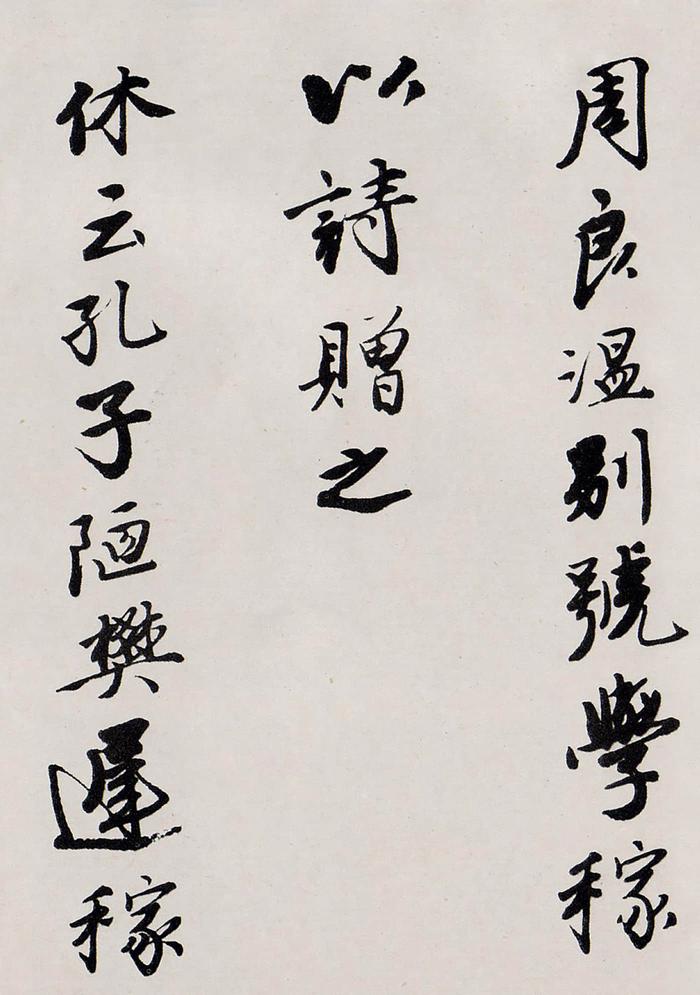 周良溫別號學稼
以詩贈之
休云孔子陋樊遲稼